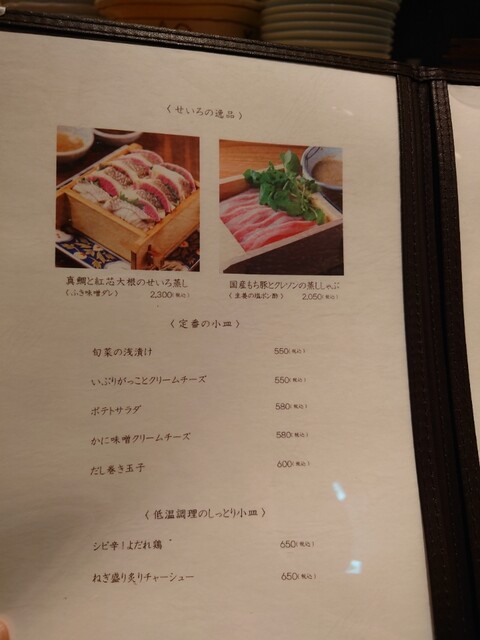 〈 せいろの逸品 〉
真鯛と紅芯大根のせいろ蒸し
(ふき味噌ダレ) 2,300(税込)
国産もち豚とクレソンの蒸ししゃぶ
(生姜の塩ポン酢) 2,050(税込)
〈 定番の小皿 〉
旬菜の浅漬け 550(税込)
いぶりがっことクリームチーズ 550(税込)
ポテトサラダ 580(税込)
かに味噌クリームチーズ 580(税込)
だし巻き玉子 600(税込)
〈 低温調理のしっとり小皿 〉
シビ辛!よだれ鶏 650(税込)
ねぎ盛り炙りチャーシュー 650(税込)